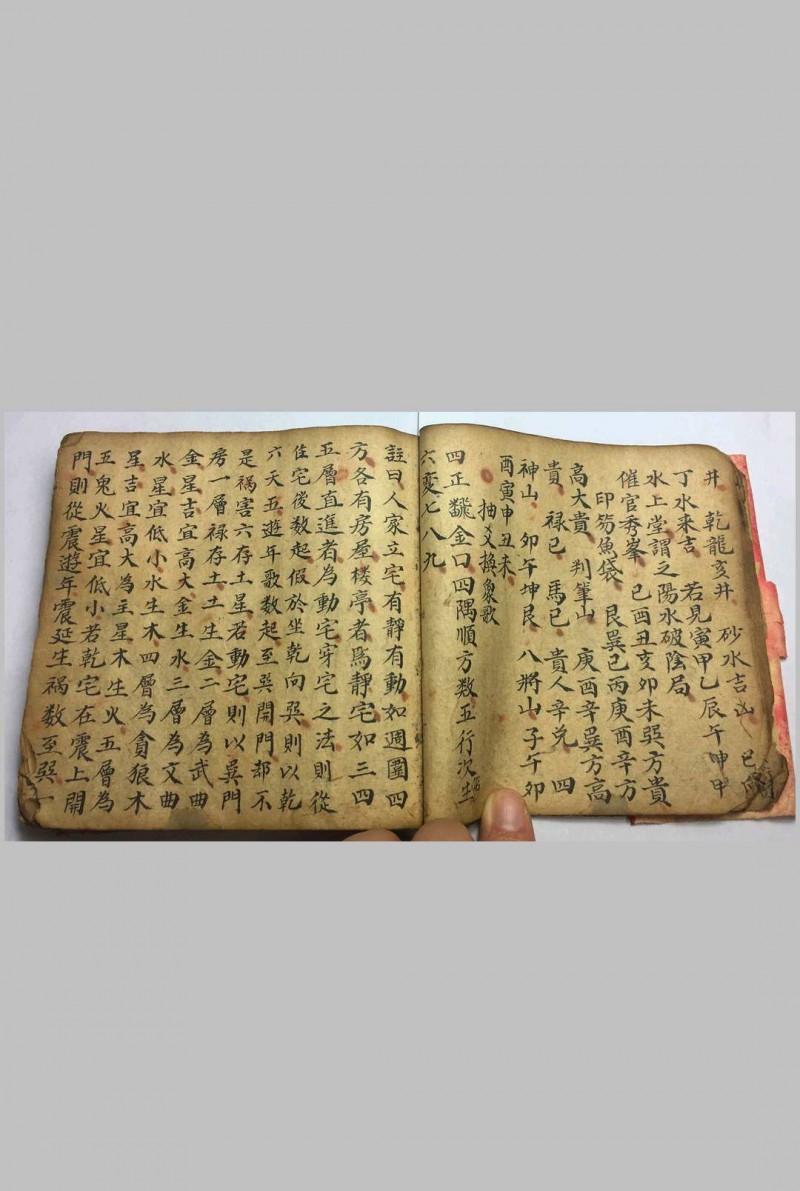 砂水吉凶 巳丙
井 乾龍亥井
丁水来吉 若見寅甲乙辰午坤申
水上堂謂之陽水破陰局
催官秀峯 巳酉丑亥卯未巽方貴
印笏魚袋 艮巽巳丙庚酉辛方
高大貴 判筆山 庚酉辛巽方高
貴 禄巳 馬巳 貴人辛兑 四
神山 卯午坤艮 八將山子午卯
酉寅申丑未
抽爻換象歌
四正飜金口四隅順方数五行次生
六変七八九
註曰人家立宅有靜有動如週圍四
方各有房屋楼亭者為靜宅如三四
五層直進者為動宅穿宅之法則從
住宅後数起假於坐乾向巽則以乾
六天五遊年歌数起至巽開門却不
是禍害六存土星若動宅則以巽門
房一層禄存土土生金二層為武曲
金星吉宜高大金生水三層為文曲
水星宜低小水生木四層為貪狼木
星吉宜高大為主星木生火五層為
五鬼火星宜低小若乾宅在震上開
門則從震遊年震延生禍数至巽一